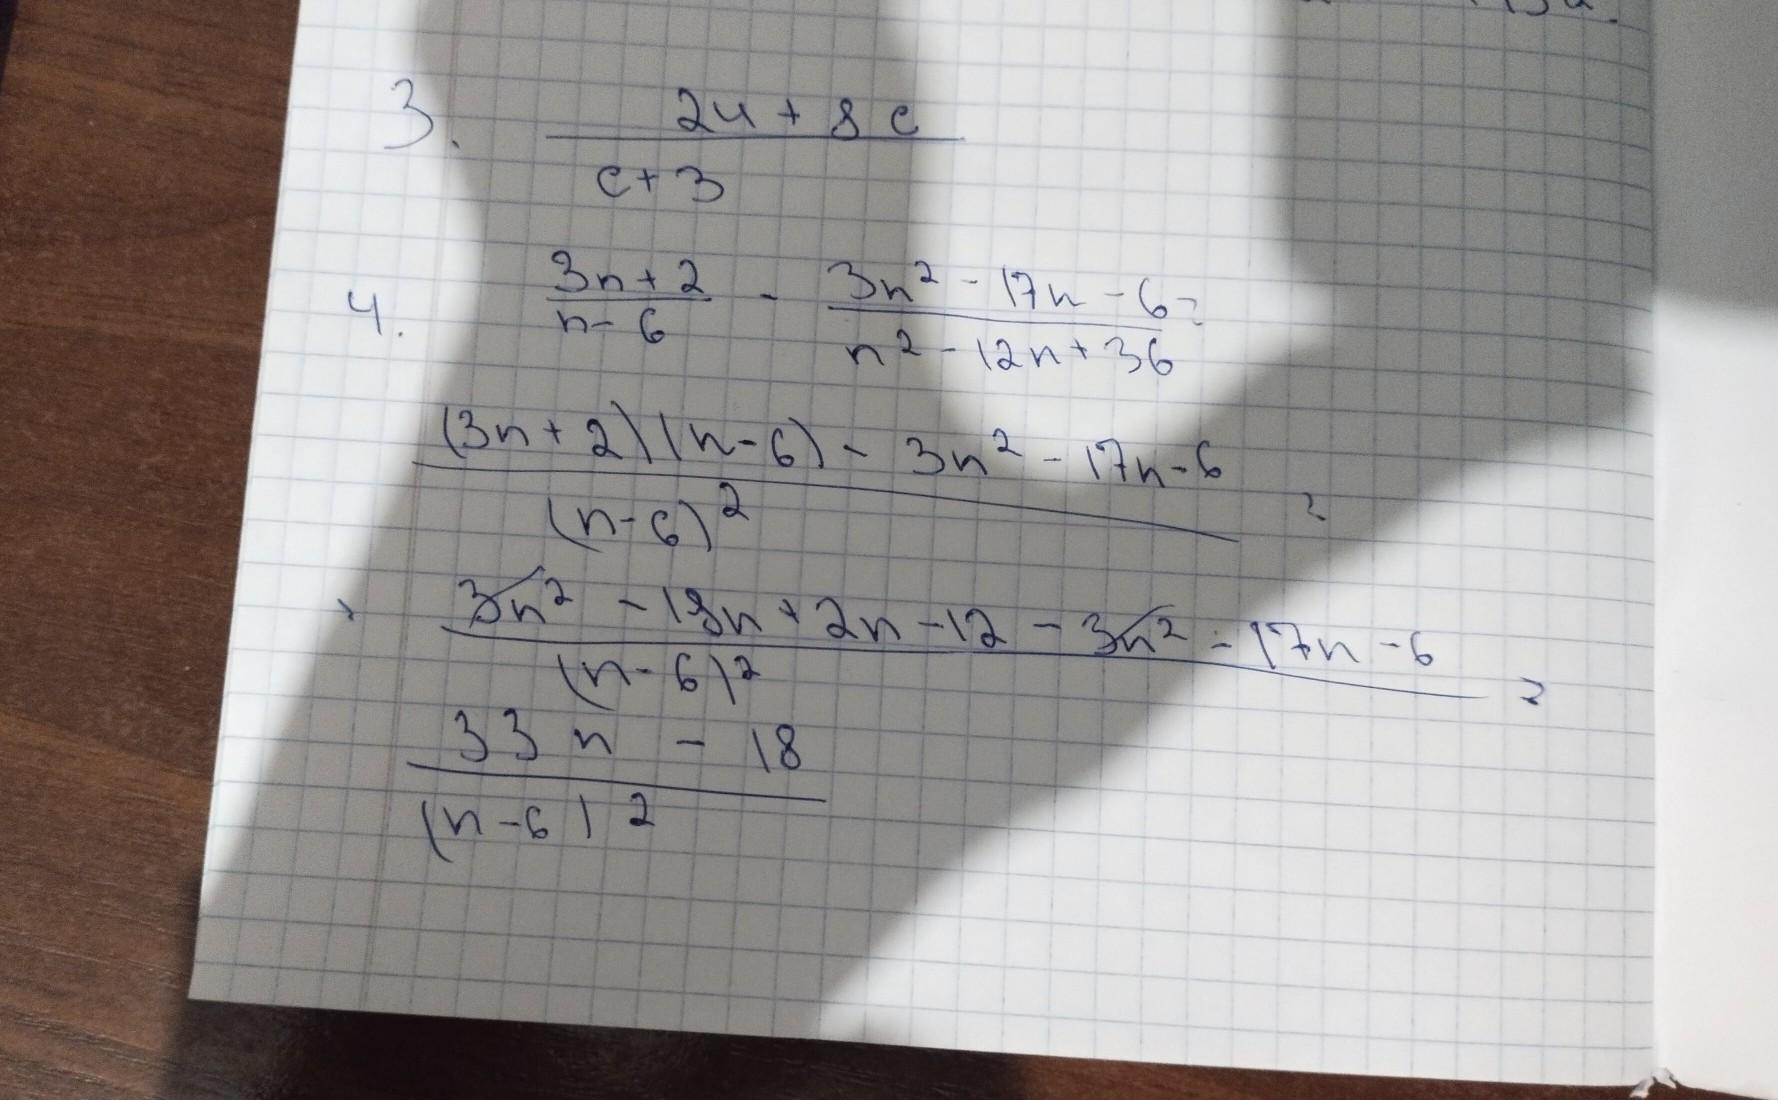 3. 24 + 8c
c + 3
4. 3n + 2 - 3n² - 17n - 6 =
n - 6 n² - 12n + 36
(3n + 2)(n - 6) - 3n² - 17n - 6 =
(n - 6)²
= 3n² - 18n + 2n - 12 - 3n² - 17n - 6 =
(n - 6)²
33n - 18
(n - 6)²